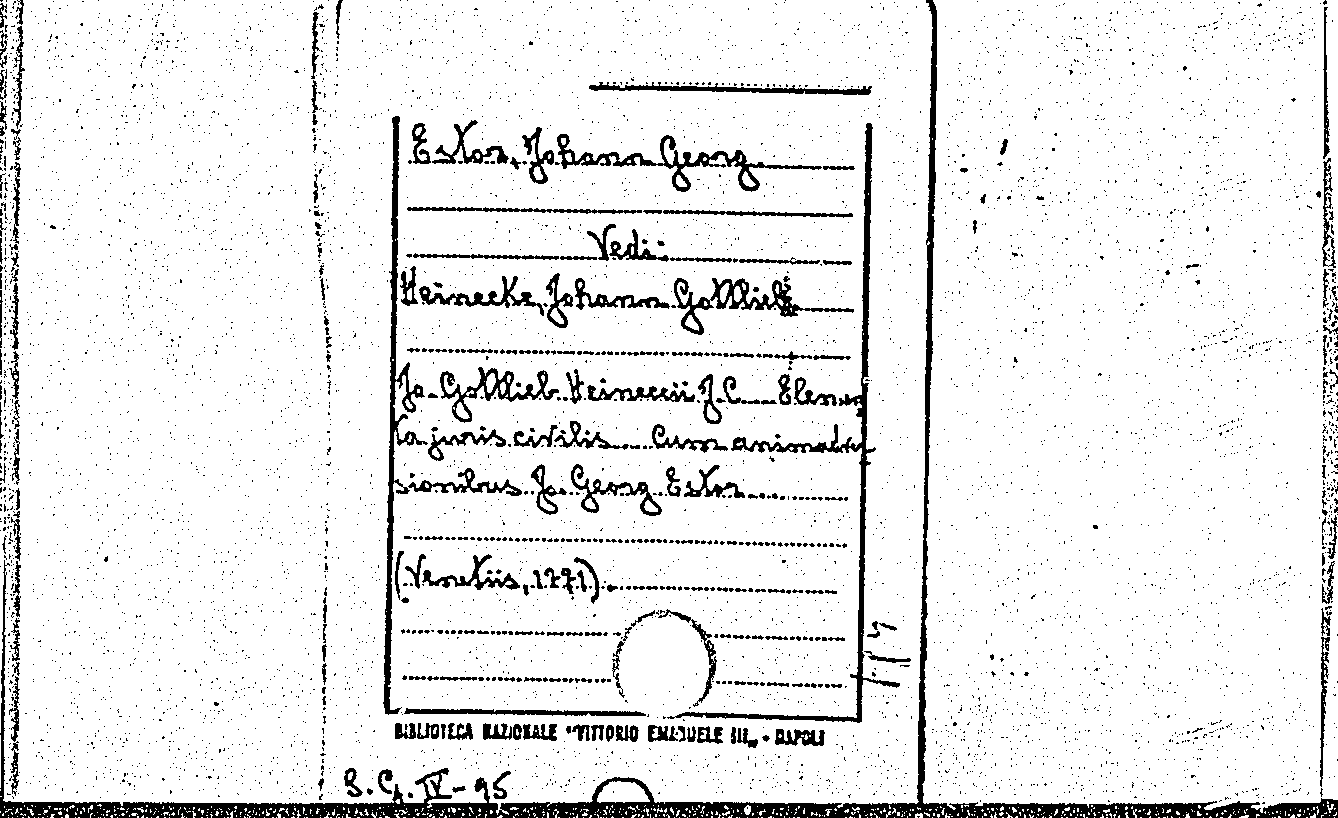 Estor, Johann Georg
Vedi:
Heinecke, Johann Gottlieb
Jo. Gottlieb Heineccii J. C. ... Elemen
ta juris civilis ... Cum animadver
sionibus Jo. Georg Estor ...
(Venetiis, 1771).
BIBLIOTECA NAZIONALE "VITTORIO EMANUELE III„ - NAPOLI